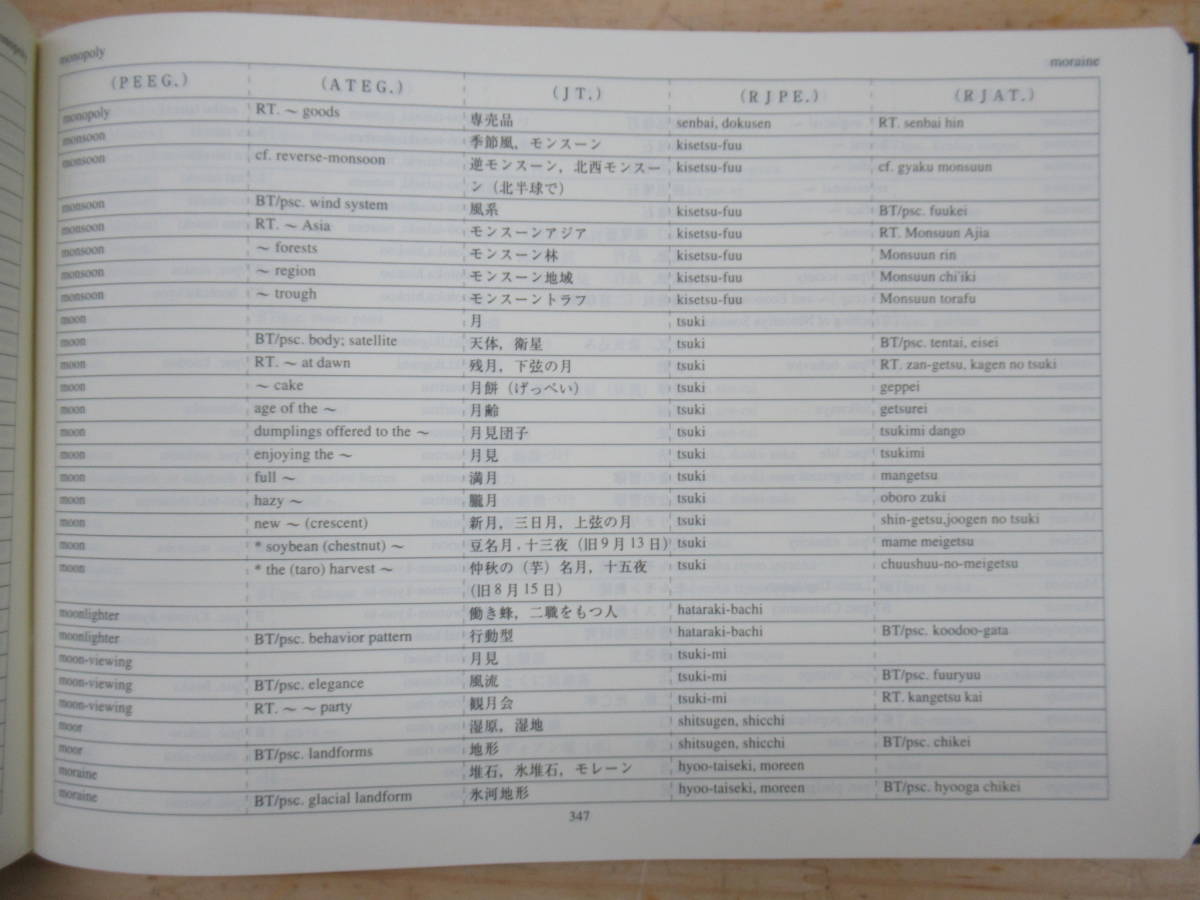 monopoly moraine
(PEEG.) (ATEG.) (JT.) (RJPE.) (RJAT.)
monopoly RT. ～ goods 専売品 senbai, dokusen RT. senbai hin
monsoon 季節風，モンスーン kisetsu-fuu
monsoon cf. reverse-monsoon 逆モンスーン，北西モンスー kisetsu-fuu cf. gyaku monsuun
ン（北半球で）
monsoon BT/psc. wind system 風系 kisetsu-fuu BT/psc. fuukei
monsoon RT. ～ Asia モンスーンアジア kisetsu-fuu RT. Monsuun Ajia
monsoon ～ forests モンスーン林 kisetsu-fuu Monsuun rin
monsoon ～ region モンスーン地域 kisetsu-fuu Monsuun chi'iki
monsoon ～ trough モンスーントラフ kisetsu-fuu Monsuun torafu
moon 月 tsuki
moon BT/psc. body; satellite 天体，衛星 tsuki BT/psc. tentai, eisei
moon RT. ～ at dawn 残月，下弦の月 tsuki RT. zan-getsu, kagen no tsuki
moon ～ cake 月餅（げっぺい） tsuki geppei
moon age of the ～ 月齢 tsuki getsurei
moon dumplings offered to the ～ 月見団子 tsuki tsukimi dango
moon enjoying the ～ 月見 tsuki tsukimi
moon full ～ 満月 tsuki mangetsu
moon hazy ～ 朧月 tsuki oboro zuki
moon new ～ (crescent) 新月，三日月，上弦の月 tsuki shin-getsu,joogen no tsuki
moon * soybean (chestnut) ～ 豆名月，十三夜（旧9月13日） tsuki mame meigetsu
moon * the (taro) harvest ～ 仲秋の（芋）名月，十五夜 tsuki chuushuu-no-meigetsu
（旧8月15日）
moonlighter 働き蜂，二職をもつ人 hataraki-bachi
moonlighter BT/psc. behavior pattern 行動型 hataraki-bachi BT/psc. koodoo-gata
moon-viewing 月見 tsuki-mi
moon-viewing BT/psc. elegance 風流 tsuki-mi BT/psc. fuuryuu
moon-viewing RT. ～ ～ party 観月会 tsuki-mi RT. kangetsu kai
moor 湿原，湿地 shitsugen, shicchi
moor BT/psc. landforms 地形 shitsugen, shicchi BT/psc. chikei
moraine 堆石，氷堆石，モレーン hyoo-taiseki, moreen
moraine BT/psc. glacial landform 氷河地形 hyoo-taiseki, moreen BT/psc. hyooga chikei
347